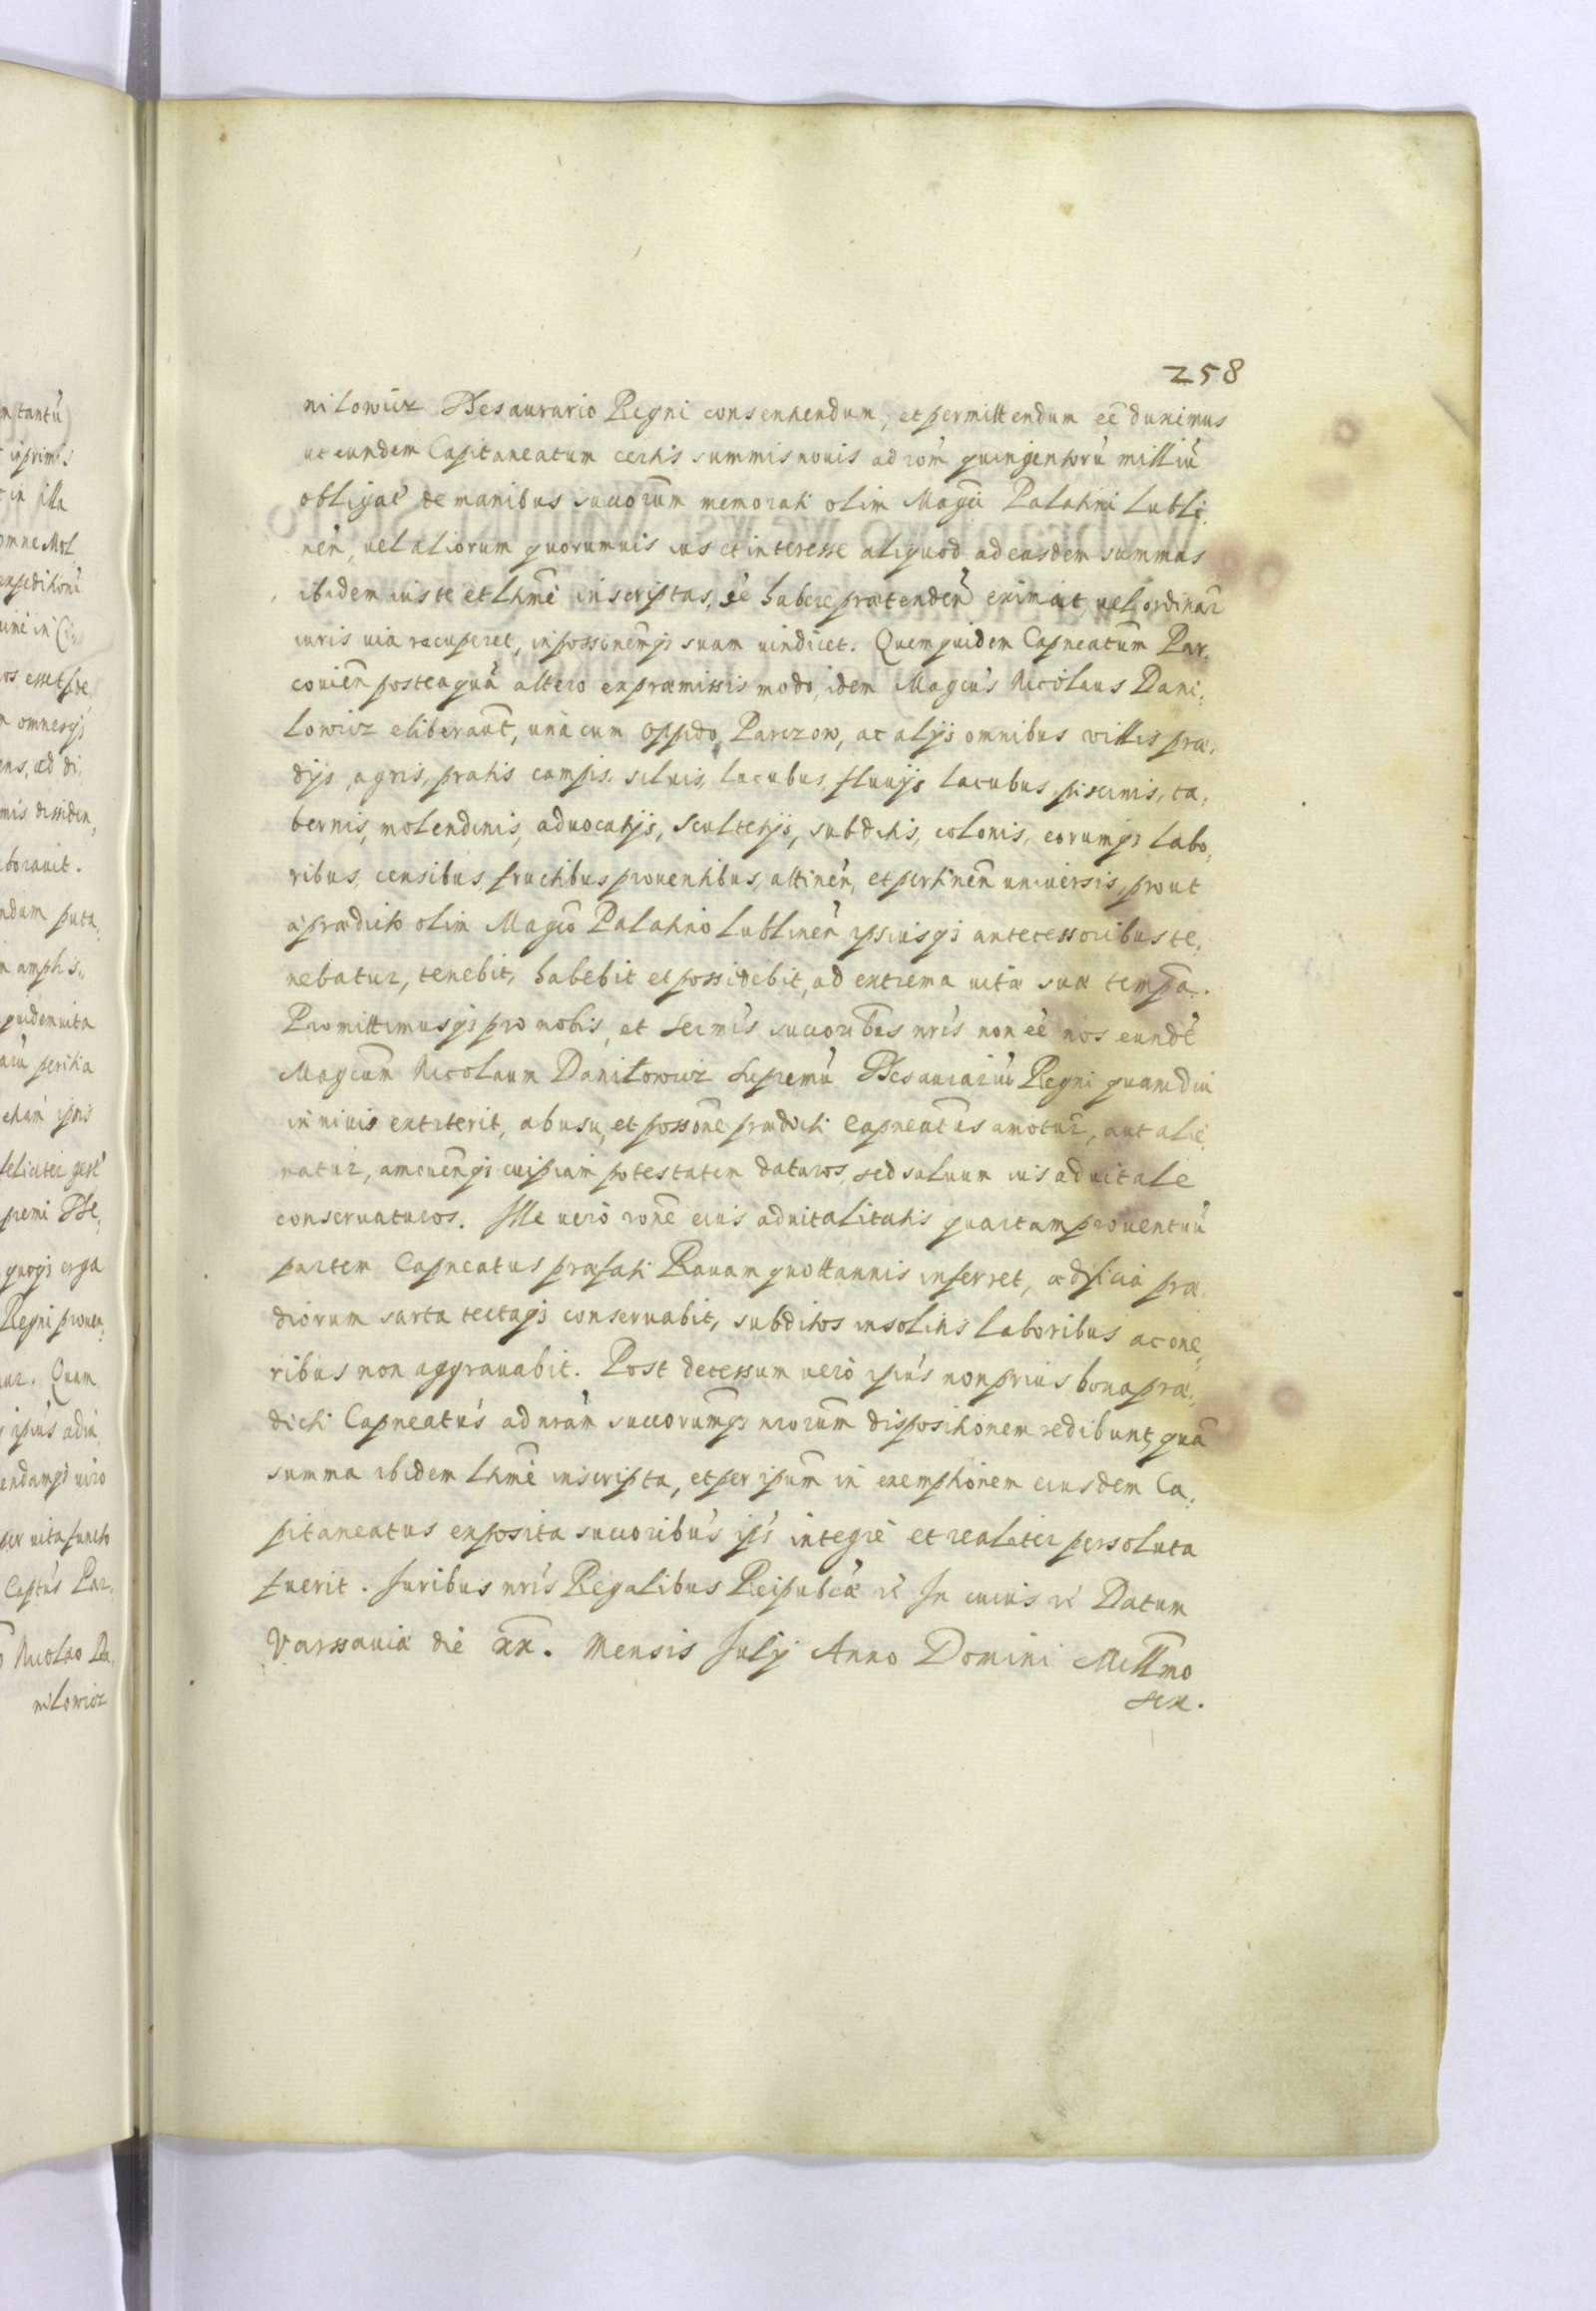 258
nilowicz Thesaurario Regni consentiendum, et permittendum eē duximus
ut eundem Capitaneatum certis summis nouis ad rōm quingentorū milliū
obligat̄ de manibus succorum memorati olim Magci Palatini Lubli,
neñ, uel aliorum quorumuis ius et interesse aliquod ad easdem summas
ibidem iuste et lḡtme inscriptas, sē habere prætendeñ eximat, uel ordinar
iuris uia recuperet, in possnemqs suam uindicet. Quemquidem Capneatum Par,
couień posteaquā altero ex præmissis modo, idem Magcus Nicolaus Dani,
lowicz eliberaūt, unà cum oppido Parczow, ac alijs omnibus villis præ,
dijs, agris, pratis campis, siluis, lacubus, fluuijs lacubus, piscinis, ta,
bernis, molendinis, aduocatijs, scultetijs, subditis, colonis, eorumqs labo,
ribus, censibus fructibus prouentibus, attineñ, et pertineñ uniuersis, prout
à prædicto olim Magco Palatino Lublineñ ipsiusqs antecessoribus te,
nebatur, tenebit, habebit et possidebit, ad extrema uitæ suæ tempa.
Promittimusqs pro nobis, et Sermis succoribus nris non eē nos eundē
Magcum Nicolaum Danilowicz Supremū Thesaurariū Regni quamdiu
in uiuis extiterit, ab usu, et possone prædicti Capneatus amotur, aut alie,
natur, amouenqs cuipiam potestatem daturos, sed saluum ius aduitale
conseruaturos. Ille uerò rone eius aduitalitatis quartam prouentuū
partem Capneatus præfati Rauam quottannis inferret, ædificia præ,
diorum sarta tectaqs conseruabit, subditos insolitis laboribus ac one,
ribus non aggrauabit. Post decessum uerò ipius non prius bona præ,
dicti Capneatus ad nram succorumqs nrorum dispositionem redibunt, quā
summa ibidem lḡtme inscripta, et per ipum in exemptionem eiusdem Ca,
pitaneatus exposita succoribus ips integrè et realiter persoluta
fuerit. Iuribus nris Regalibus Reipubcæ rc̄ In cuius rc̄ Datum
Varssauiæ die xx. Mensis July Anno Domini Millmo
sex.